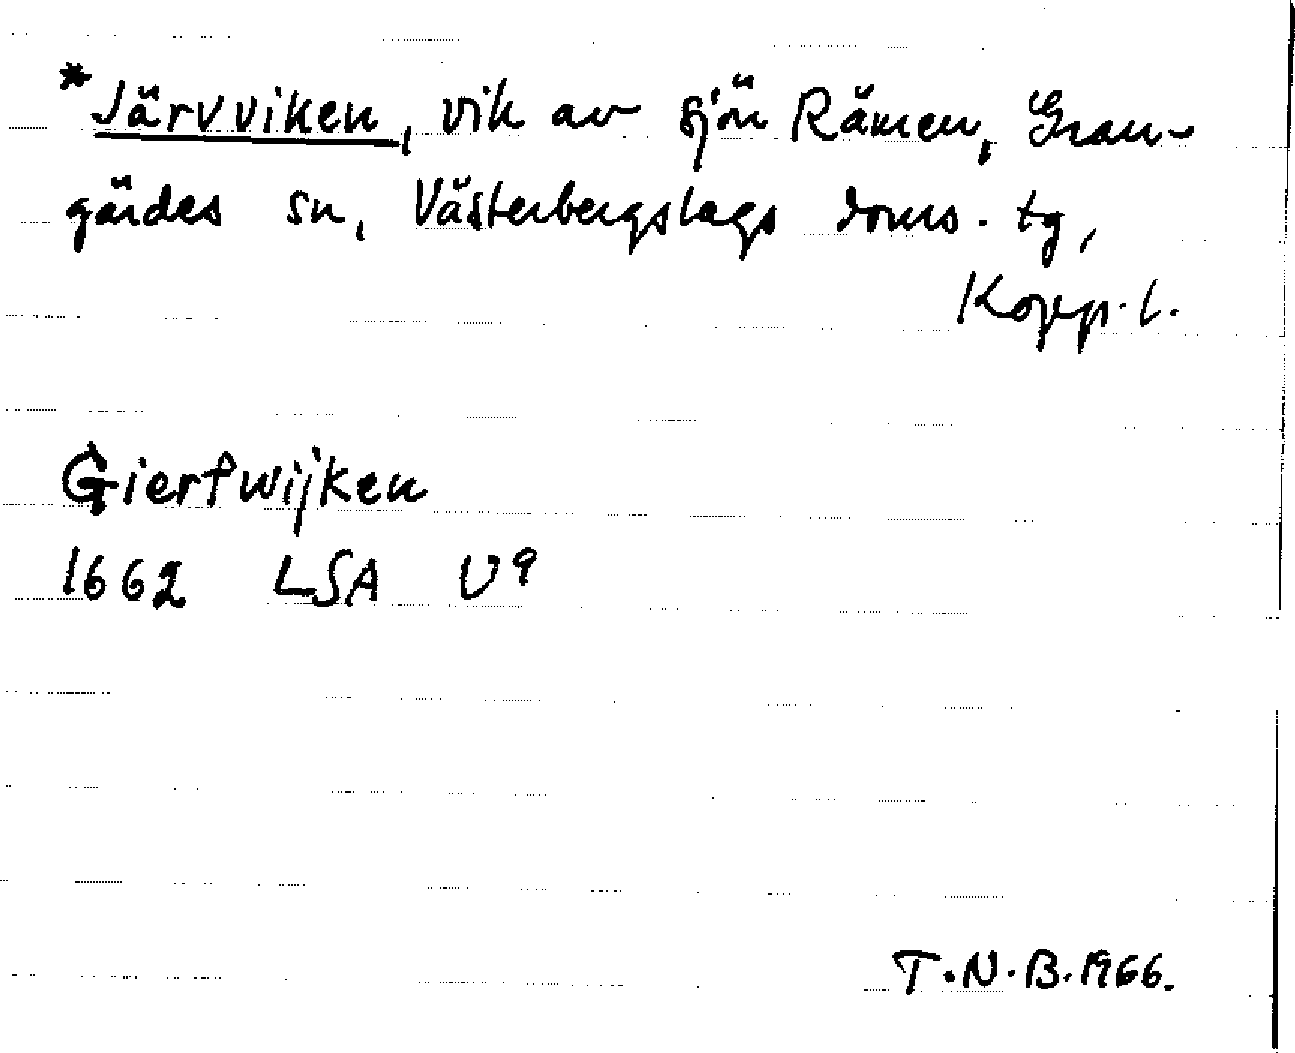 *Järvviken, vik av sjön Rämen, Gran-
gärdes sn, Västerbergslags doms. tg,
Kopp. l.
Giertwijken
1662 LSA U9
T.N.B. 1966.